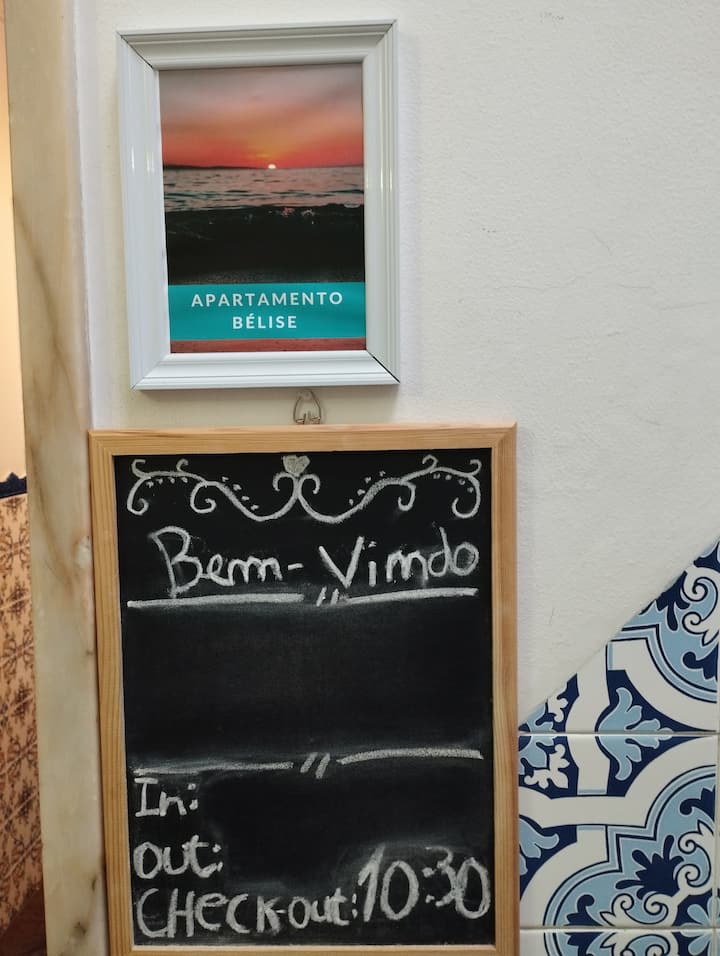 APARTAMENTO
BÉLISE
Bem-Vindo
In:
out:
CHeck-out: 10:30